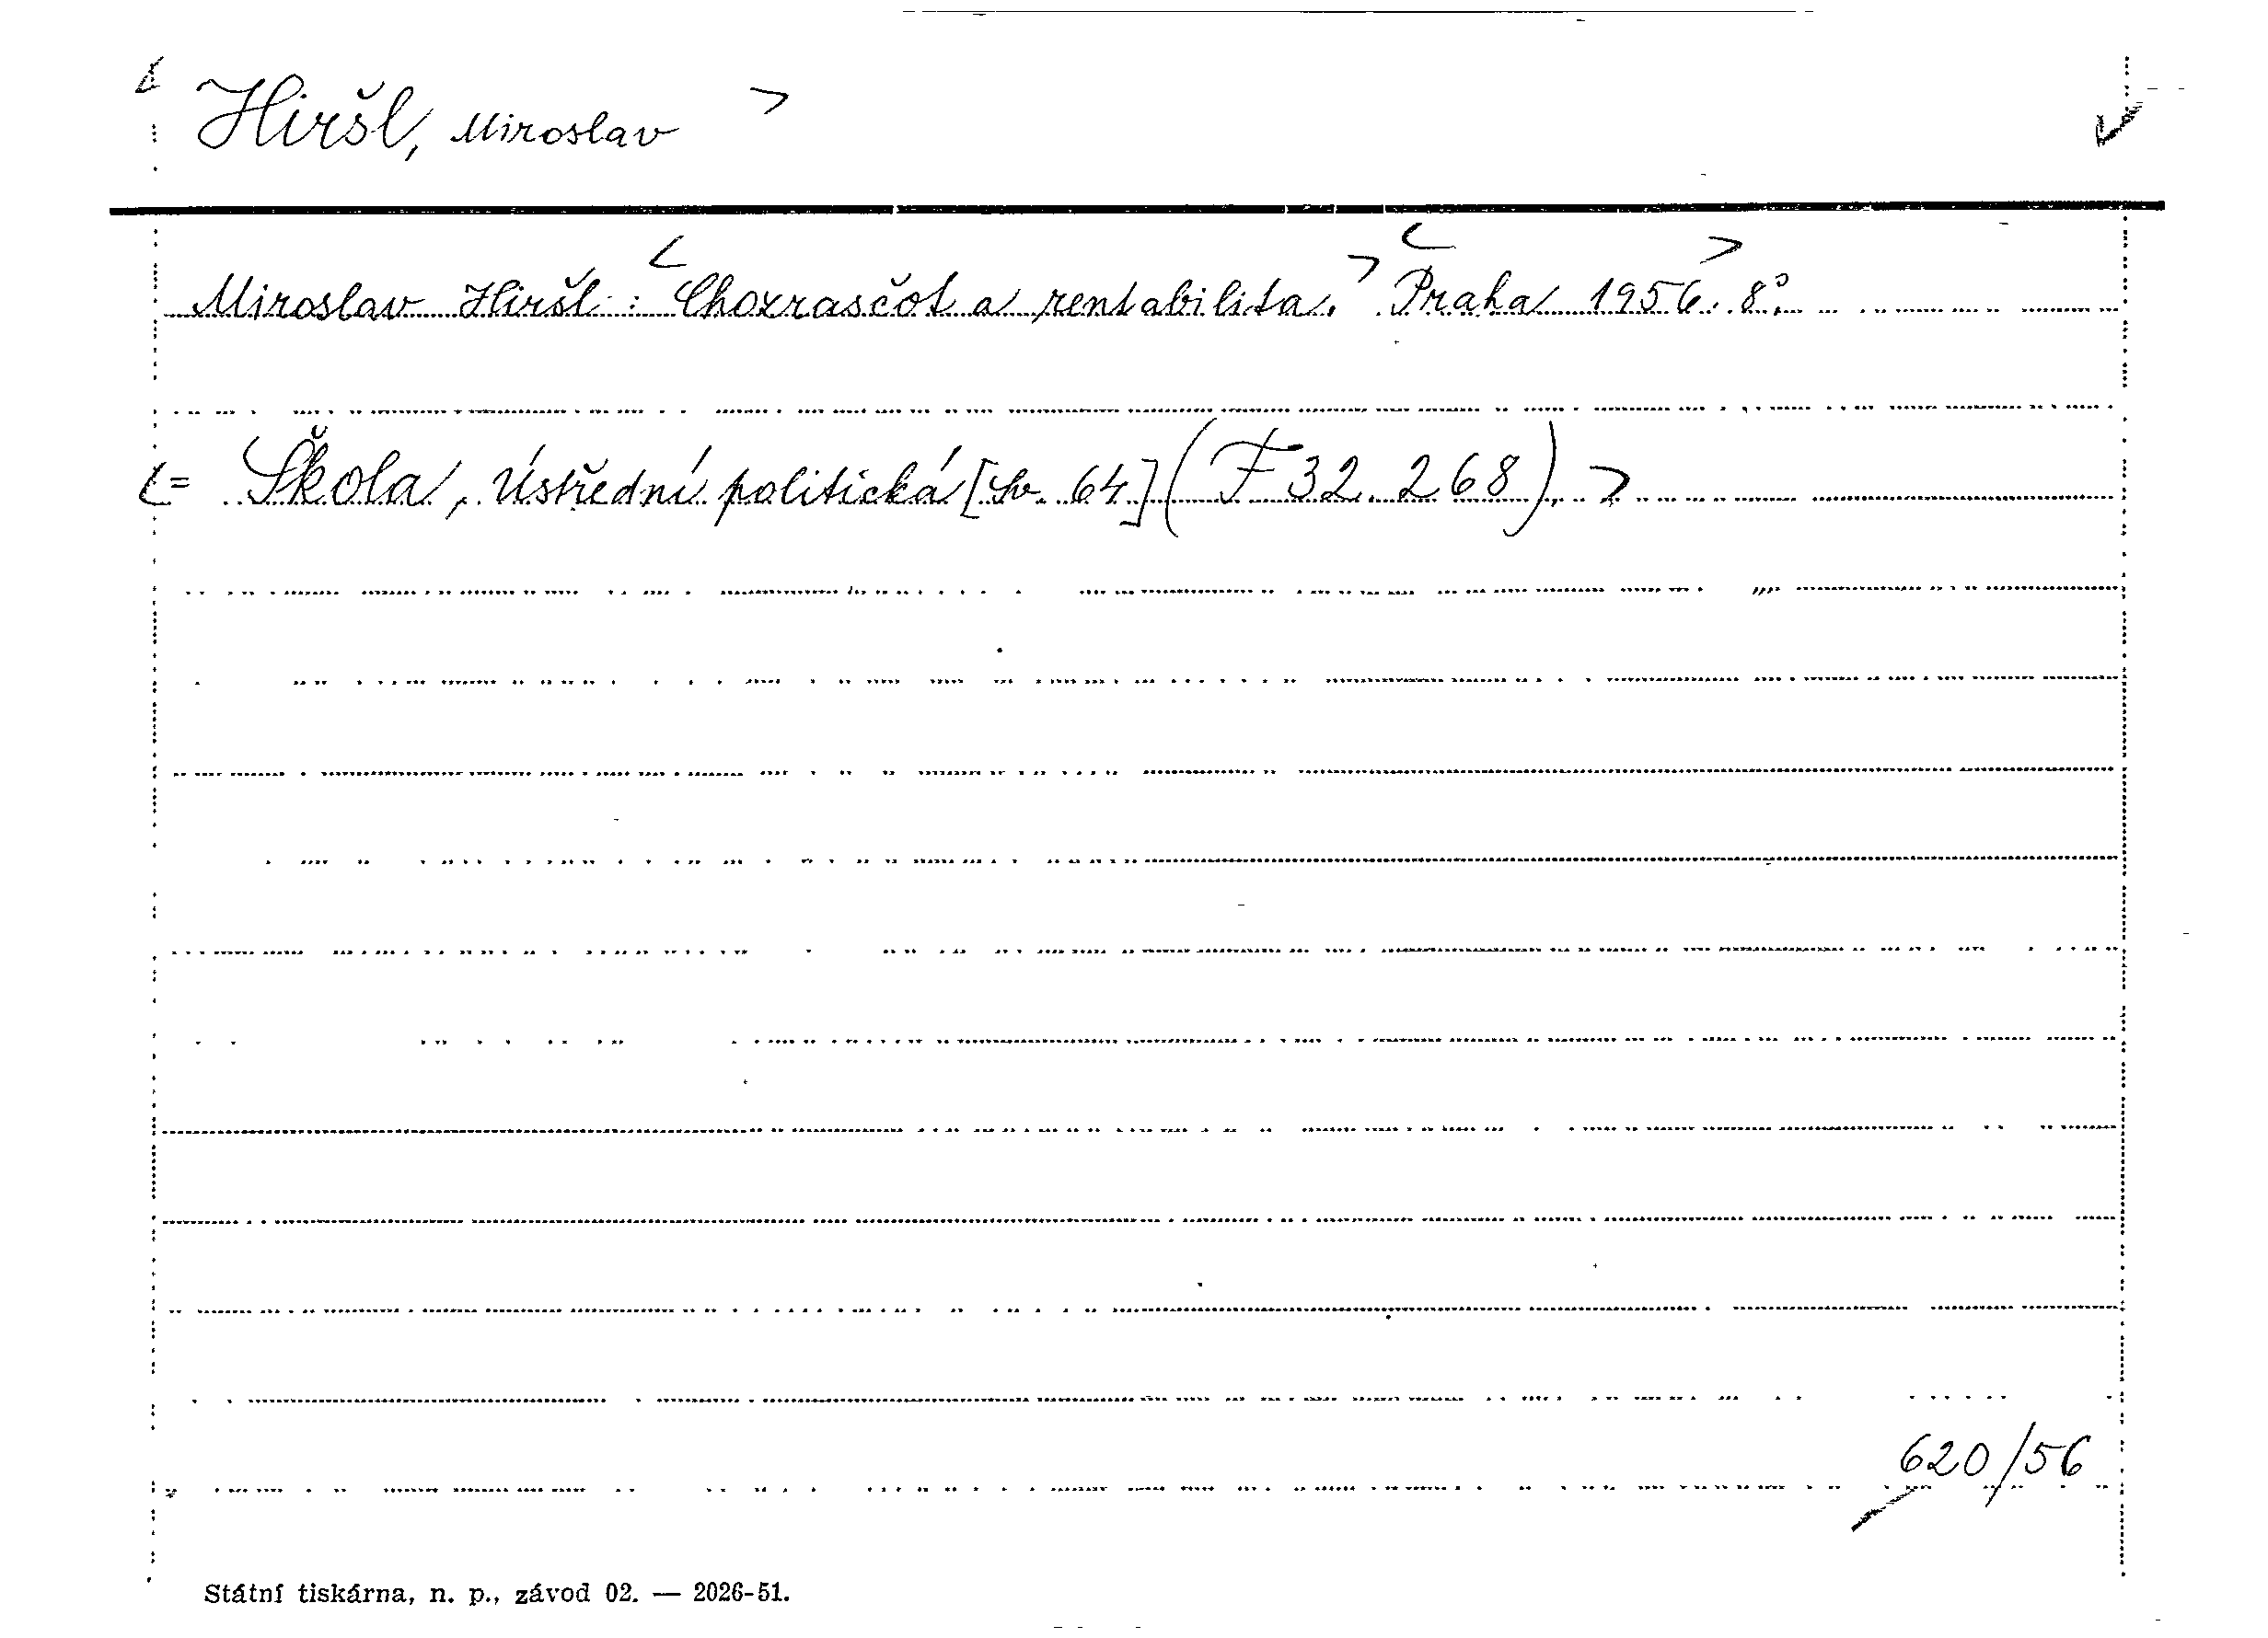 < Hiršl, Miroslav >
Miroslav Hiršl: < Chozrasčot a rentabilita. > < Praha 1956. > 8°.
< = Škola, Ústřední politická [sv. 64] (F 32.268). >
620/56
Státní tiskárna, n. p., závod 02. — 2026-51.